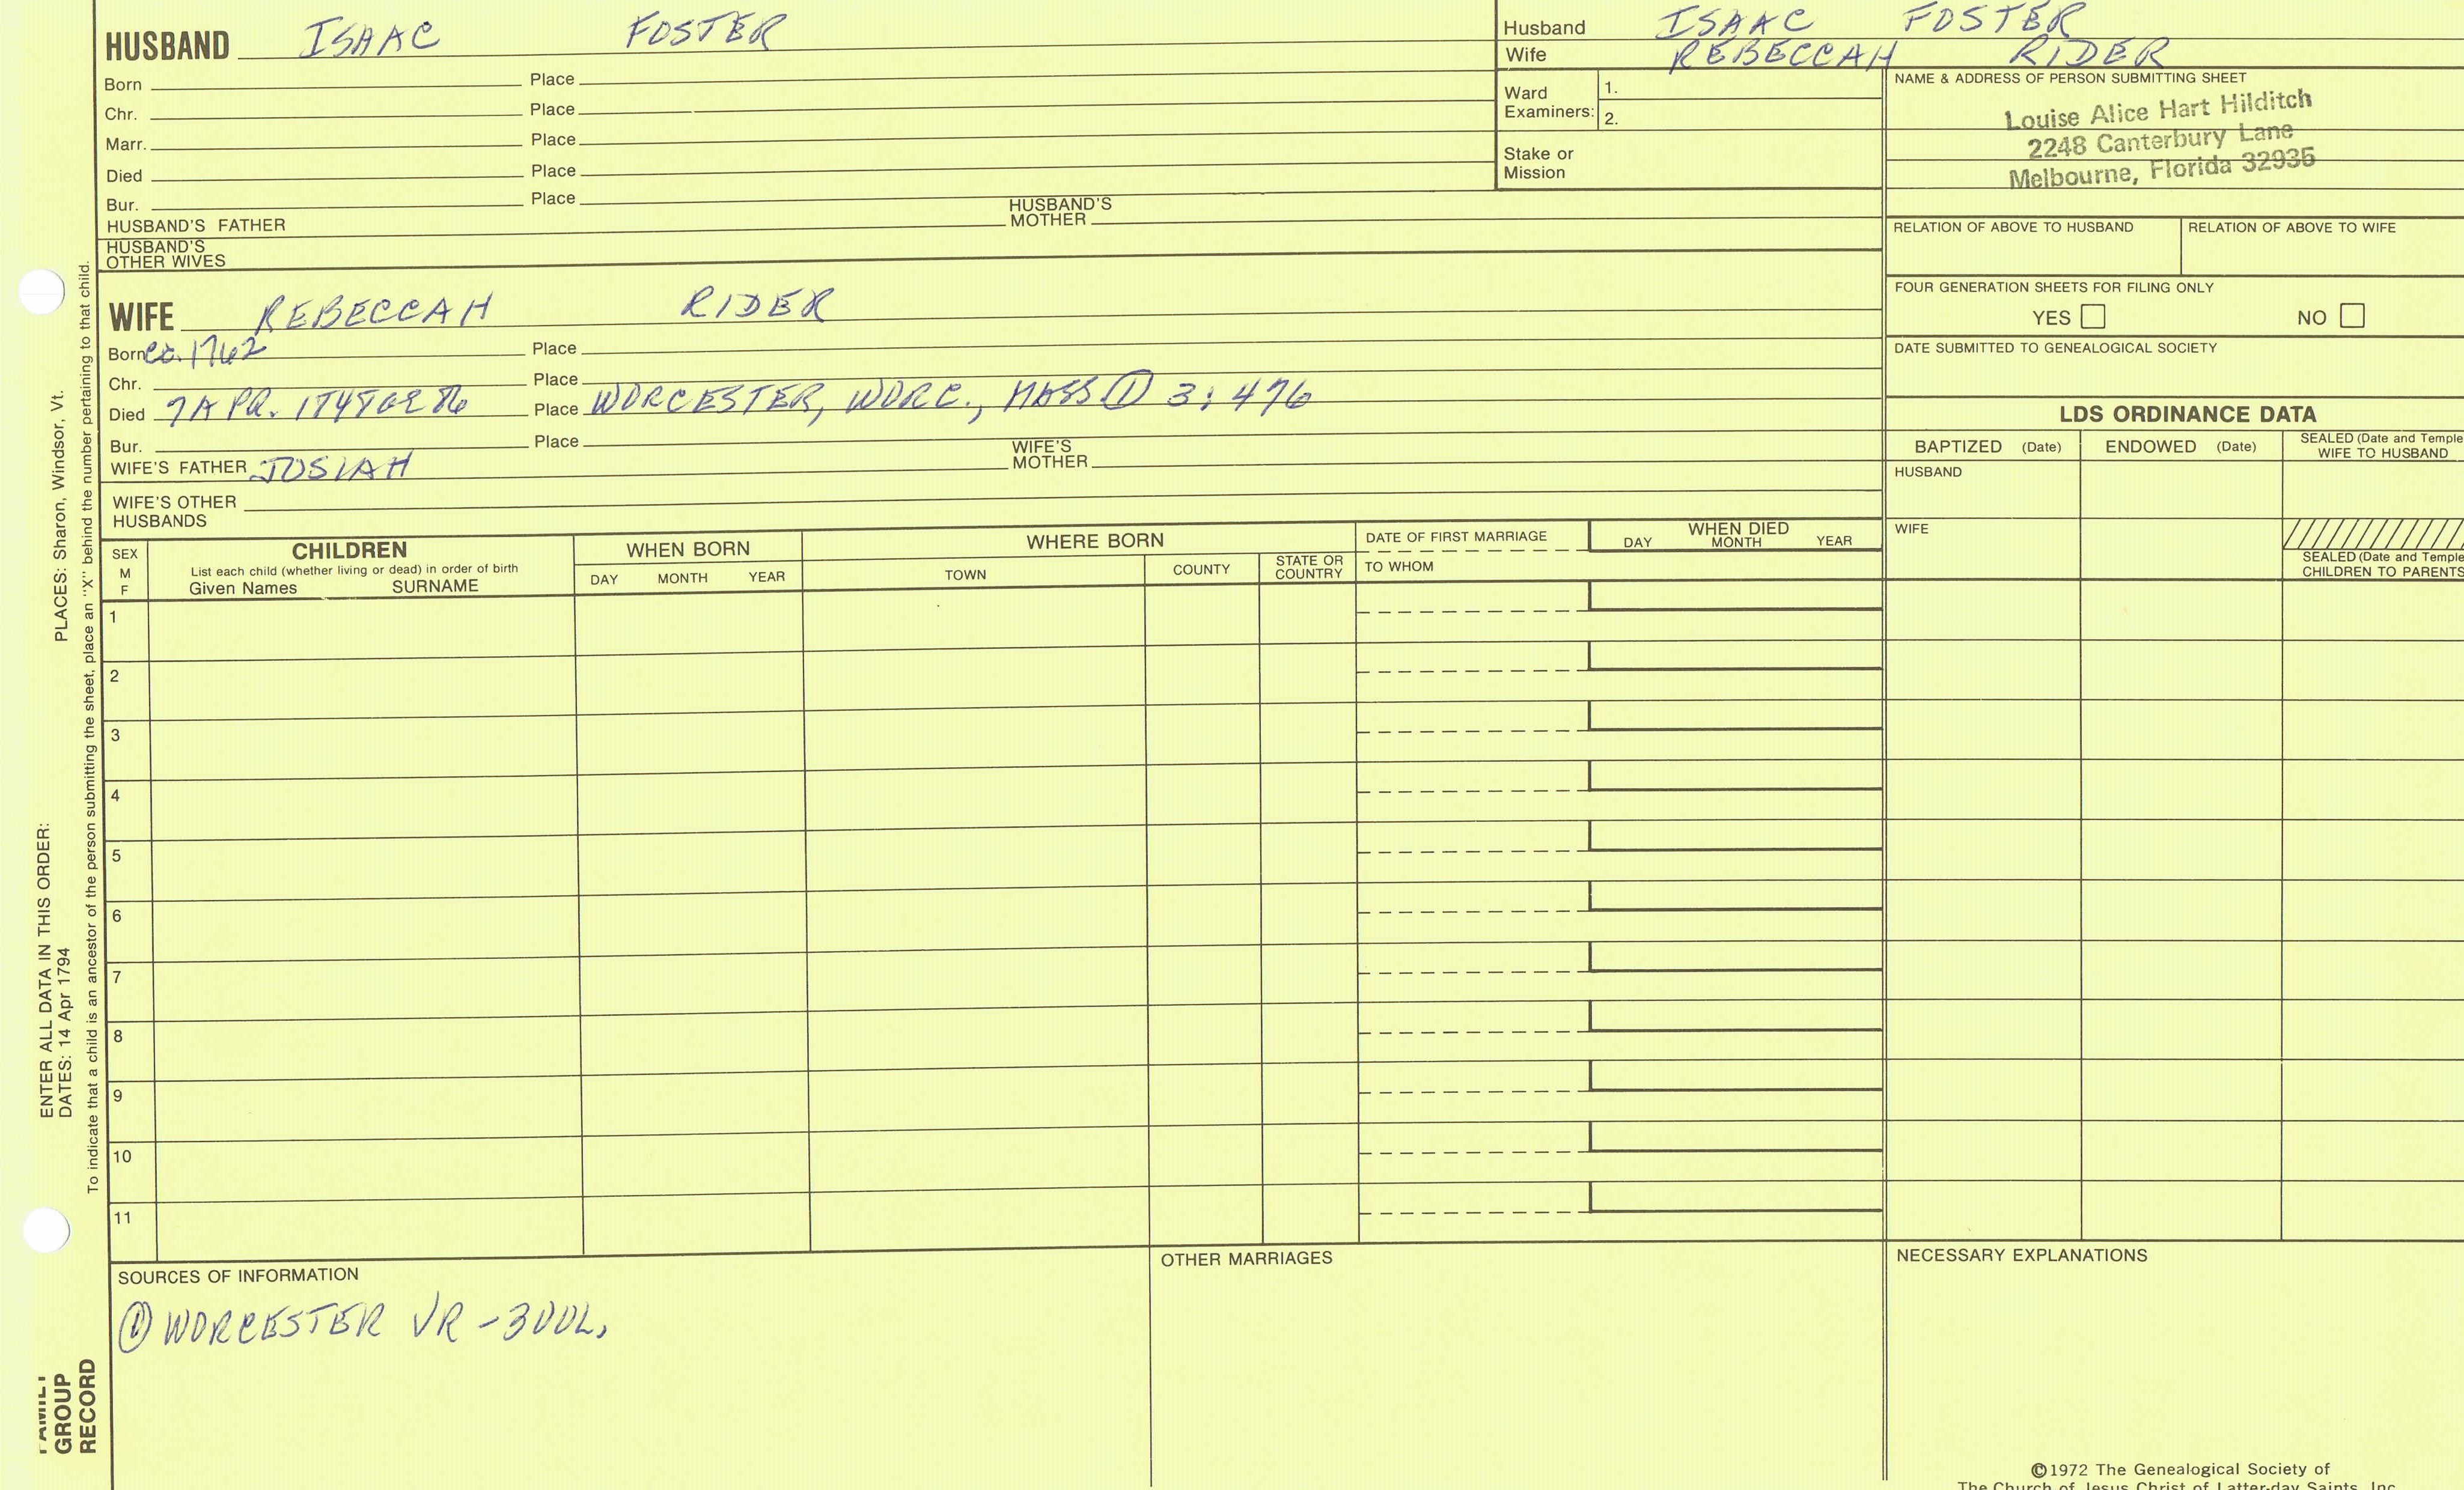 HUSBAND ISAAC FOSTER
Born Place
Chr. Place
Marr. Place
Died Place
Bur. Place
HUSBAND'S FATHER HUSBAND'S MOTHER
HUSBAND'S OTHER WIVES
WIFE REBECCAH RIDER
Born ca. 1762 Place
Chr. Place
Died 7 APR. Place WORCESTER, WORC., MASS ① 3: 476
Bur. Place
WIFE'S FATHER JOSIAH WIFE'S MOTHER
WIFE'S OTHER HUSBANDS
Husband ISAAC FOSTER
Wife REBECCAH RIDER
Ward Examiners: 1.
2.
Stake or Mission
NAME & ADDRESS OF PERSON SUBMITTING SHEET
Louise Alice Hart Hilditch
2248 Canterbury Lane
Melbourne, Florida 32935
RELATION OF ABOVE TO HUSBAND RELATION OF ABOVE TO WIFE
FOUR GENERATION SHEETS FOR FILING ONLY
YES NO
DATE SUBMITTED TO GENEALOGICAL SOCIETY
LDS ORDINANCE DATA
BAPTIZED (Date) ENDOWED (Date) SEALED (Date and Temple
WIFE TO HUSBAND
HUSBAND
WIFE
SEALED (Date and Temple
CHILDREN TO PARENTS
SEX
M
F
CHILDREN
List each child (whether living or dead) in order of birth
Given Names SURNAME
WHEN BORN
DAY MONTH YEAR
WHERE BORN
TOWN COUNTY STATE OR COUNTRY
DATE OF FIRST MARRIAGE
TO WHOM
WHEN DIED
DAY MONTH YEAR
1
2
3
4
5
6
7
8
9
10
11
SOURCES OF INFORMATION
① WORCESTER VR -
OTHER MARRIAGES
NECESSARY EXPLANATIONS
©1972 The Genealogical Society of
The Church of Jesus Christ of Latter-day Saints, Inc.
ENTER ALL DATA IN THIS ORDER:
DATES: 14 Apr 1794 PLACES: Sharon, Windsor, Vt.
To indicate that a child is an ancestor of the person submitting the sheet, place an "X" behind the number pertaining to that child.
FAMILY
GROUP
RECORD